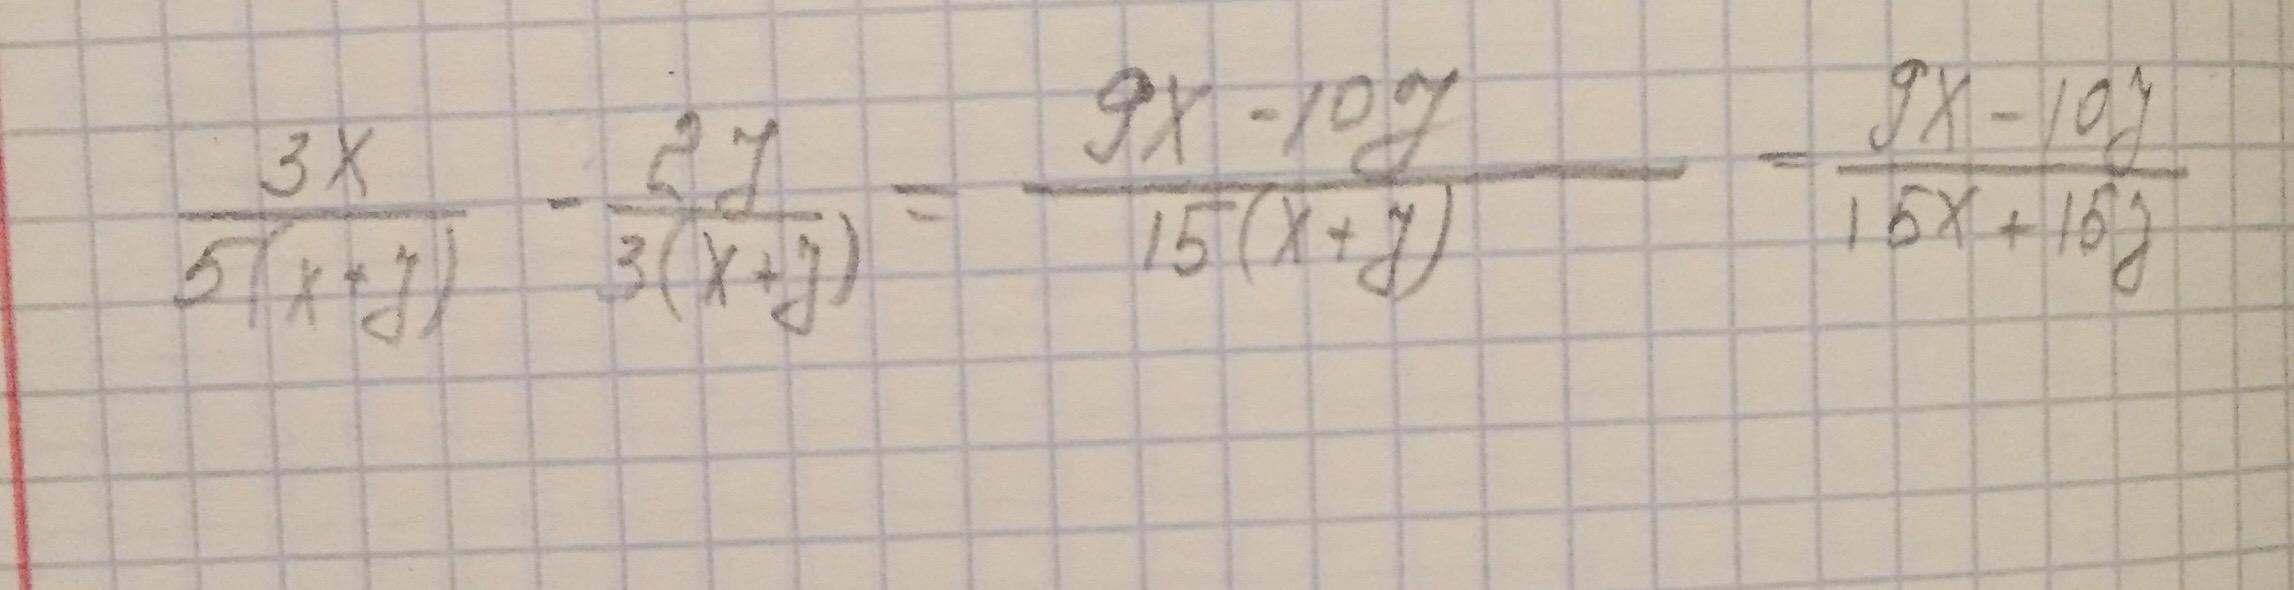 3x/5(x+y) - 2y/3(x+y) = 9x-10y/15(x+y) - 9x-10y/15x+15y